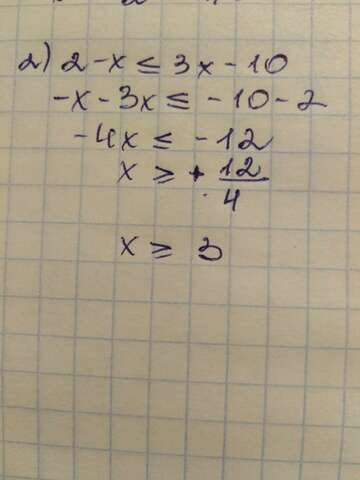 2) 2 - x ≤ 3x - 10
-x - 3x ≤ -10 - 2
-4x ≤ -12
x ≥ + 12/4
x ≥ 3